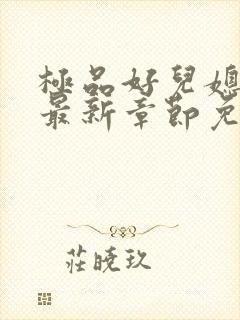 極品好兒媳
最新章節免
莊曉玖